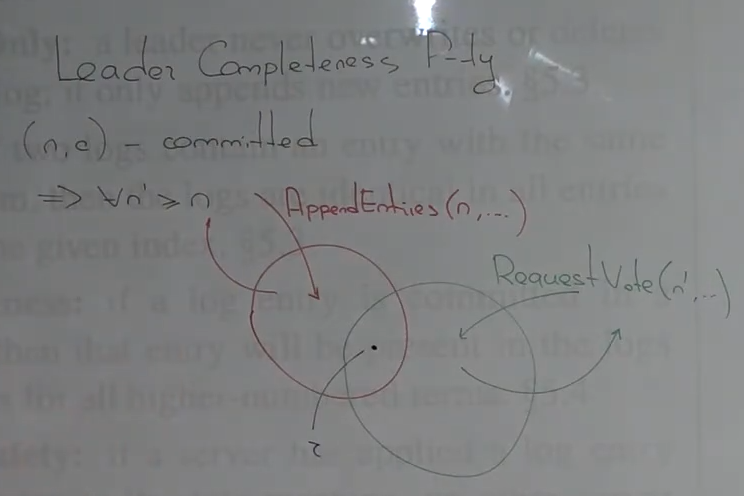 Leader Completeness P-ty
(n,c) - committed
=> ∀n' > n
AppendEntries(n,...)
RequestVote(n',...)
only: a leader never overwrites or deletes
log; it only appends new entries. §5.3
two logs contain an entry with the same
the logs are identical in all entries
given index. §5.3
if a log entry is committed in a
then that entry will be present in the logs
for all higher-numbered terms. §5.4
if a server has applied a log entry